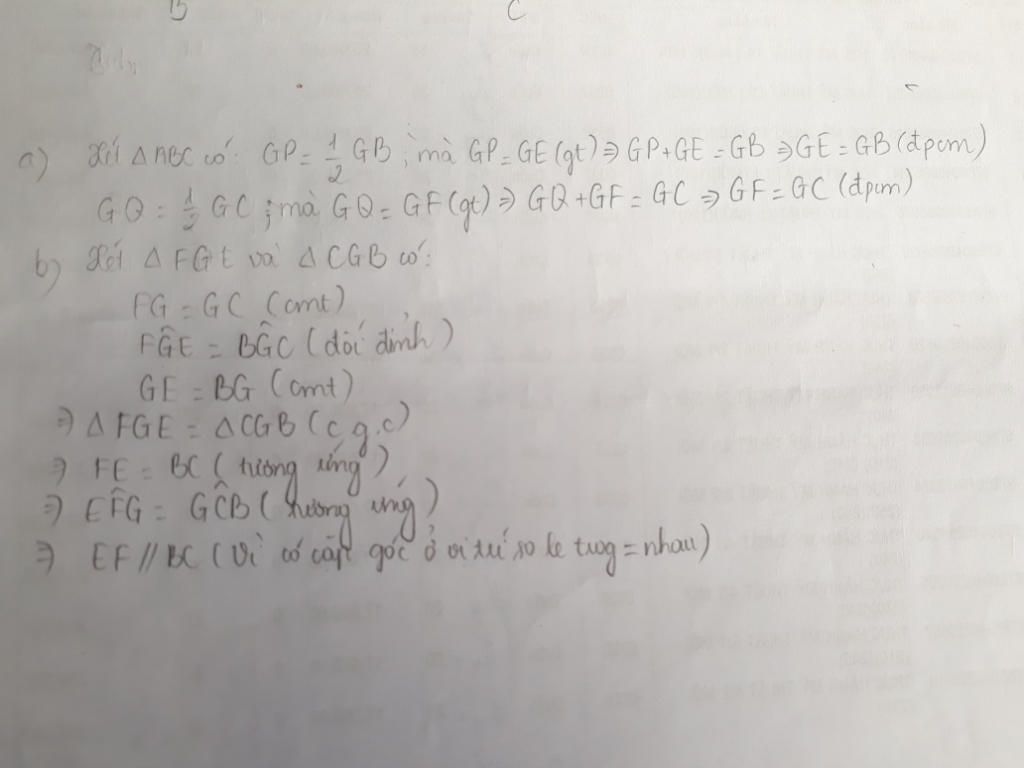 B C
a) Xét △ABC có: GP = 1/2 GB ; mà GP = GE (gt) ⇒ GP + GE = GB ⇒ GE = GB (đpcm)
GQ = 1/2 GC ; mà GQ = GF (gt) ⇒ GQ + GF = GC ⇒ GF = GC (đpcm)
b) Xét △FGE và △CGB có:
FG = GC (cmt)
FĜE = BĜC (đối đỉnh)
GE = BG (cmt)
⇒ △FGE = △CGB (c.g.c)
⇒ FE = BC (tương ứng)
⇒ EF̂G = GĈB (tương ứng)
⇒ EF // BC (Vì có cặp góc ở vị trí so le trog = nhau)